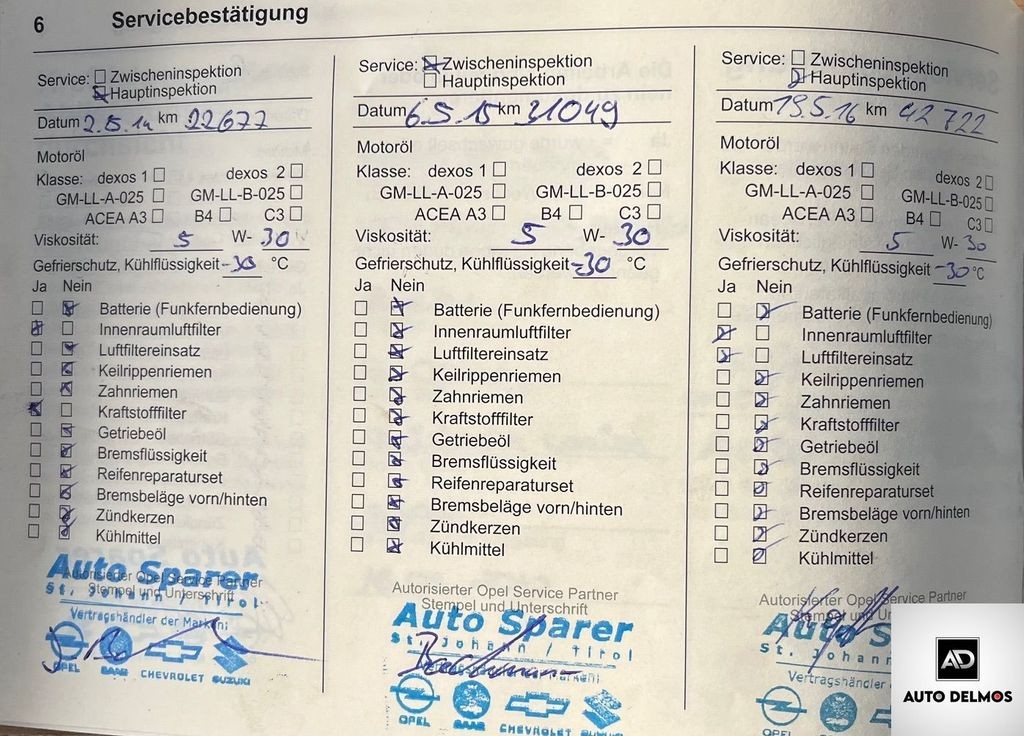 6 Servicebestätigung
Service: Zwischeninspektion
Hauptinspektion
Datum 2.5.14 km 22677
Motoröl
Klasse: dexos 1 dexos 2
GM-LL-A-025 GM-LL-B-025
ACEA A3 B4 C3
Viskosität: 5 W- 30
Gefrierschutz, Kühlflüssigkeit -30 °C
Ja Nein
Batterie (Funkfernbedienung)
Innenraumluftfilter
Luftfiltereinsatz
Keilrippenriemen
Zahnriemen
Kraftstofffilter
Getriebeöl
Bremsflüssigkeit
Reifenreparaturset
Bremsbeläge vorn/hinten
Zündkerzen
Kühlmittel
Auto Sparer
Autorisierter Opel Service Partner
Stempel und Unterschrift
St. Johann / Tirol
Vertragshändler der Marken:
OPEL SAAB CHEVROLET SUZUKI
Service: Zwischeninspektion
Hauptinspektion
Datum 6.5.15 km 31049
Motoröl
Klasse: dexos 1 dexos 2
GM-LL-A-025 GM-LL-B-025
ACEA A3 B4 C3
Viskosität: 5 W- 30
Gefrierschutz, Kühlflüssigkeit -30 °C
Ja Nein
Batterie (Funkfernbedienung)
Innenraumluftfilter
Luftfiltereinsatz
Keilrippenriemen
Zahnriemen
Kraftstofffilter
Getriebeöl
Bremsflüssigkeit
Reifenreparaturset
Bremsbeläge vorn/hinten
Zündkerzen
Kühlmittel
Autorisierter Opel Service Partner
Stempel und Unterschrift
Auto Sparer
St. Johann / Tirol
OPEL SAAB CHEVROLET SUZUKI
Service: Zwischeninspektion
Hauptinspektion
Datum 19.5.16 km 42722
Motoröl
Klasse: dexos 1 dexos 2
GM-LL-A-025 GM-LL-B-025
ACEA A3 B4 C3
Viskosität: 5 W- 30
Gefrierschutz, Kühlflüssigkeit -30 °C
Ja Nein
Batterie (Funkfernbedienung)
Innenraumluftfilter
Luftfiltereinsatz
Keilrippenriemen
Zahnriemen
Kraftstofffilter
Getriebeöl
Bremsflüssigkeit
Reifenreparaturset
Bremsbeläge vorn/hinten
Zündkerzen
Kühlmittel
Autorisierter Opel Service Partner
Stempel und
Auto S
St. Johann
Vertragshändler
OPEL
AD
AUTO DELMOS